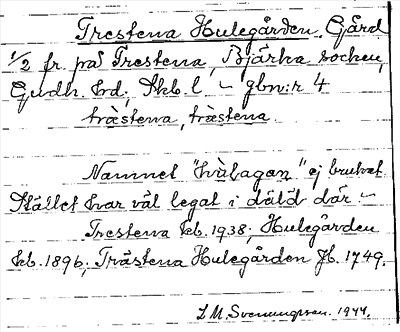 Trestena Hulegården, Gård
1/2 fr. på Trestena, Bjärka socken,
Gudh. hd; Skb. l - gbn:r 4
träs̀tena, très̀tena
Namnet "hùlagaṇ" ej brukat
Stället har väl legat i däld där -
Trestena kb. 1938; Hulegården
kb. 1896; Trästena Hulegården Jb. 1749.
L M. Svenungsson. 1944.